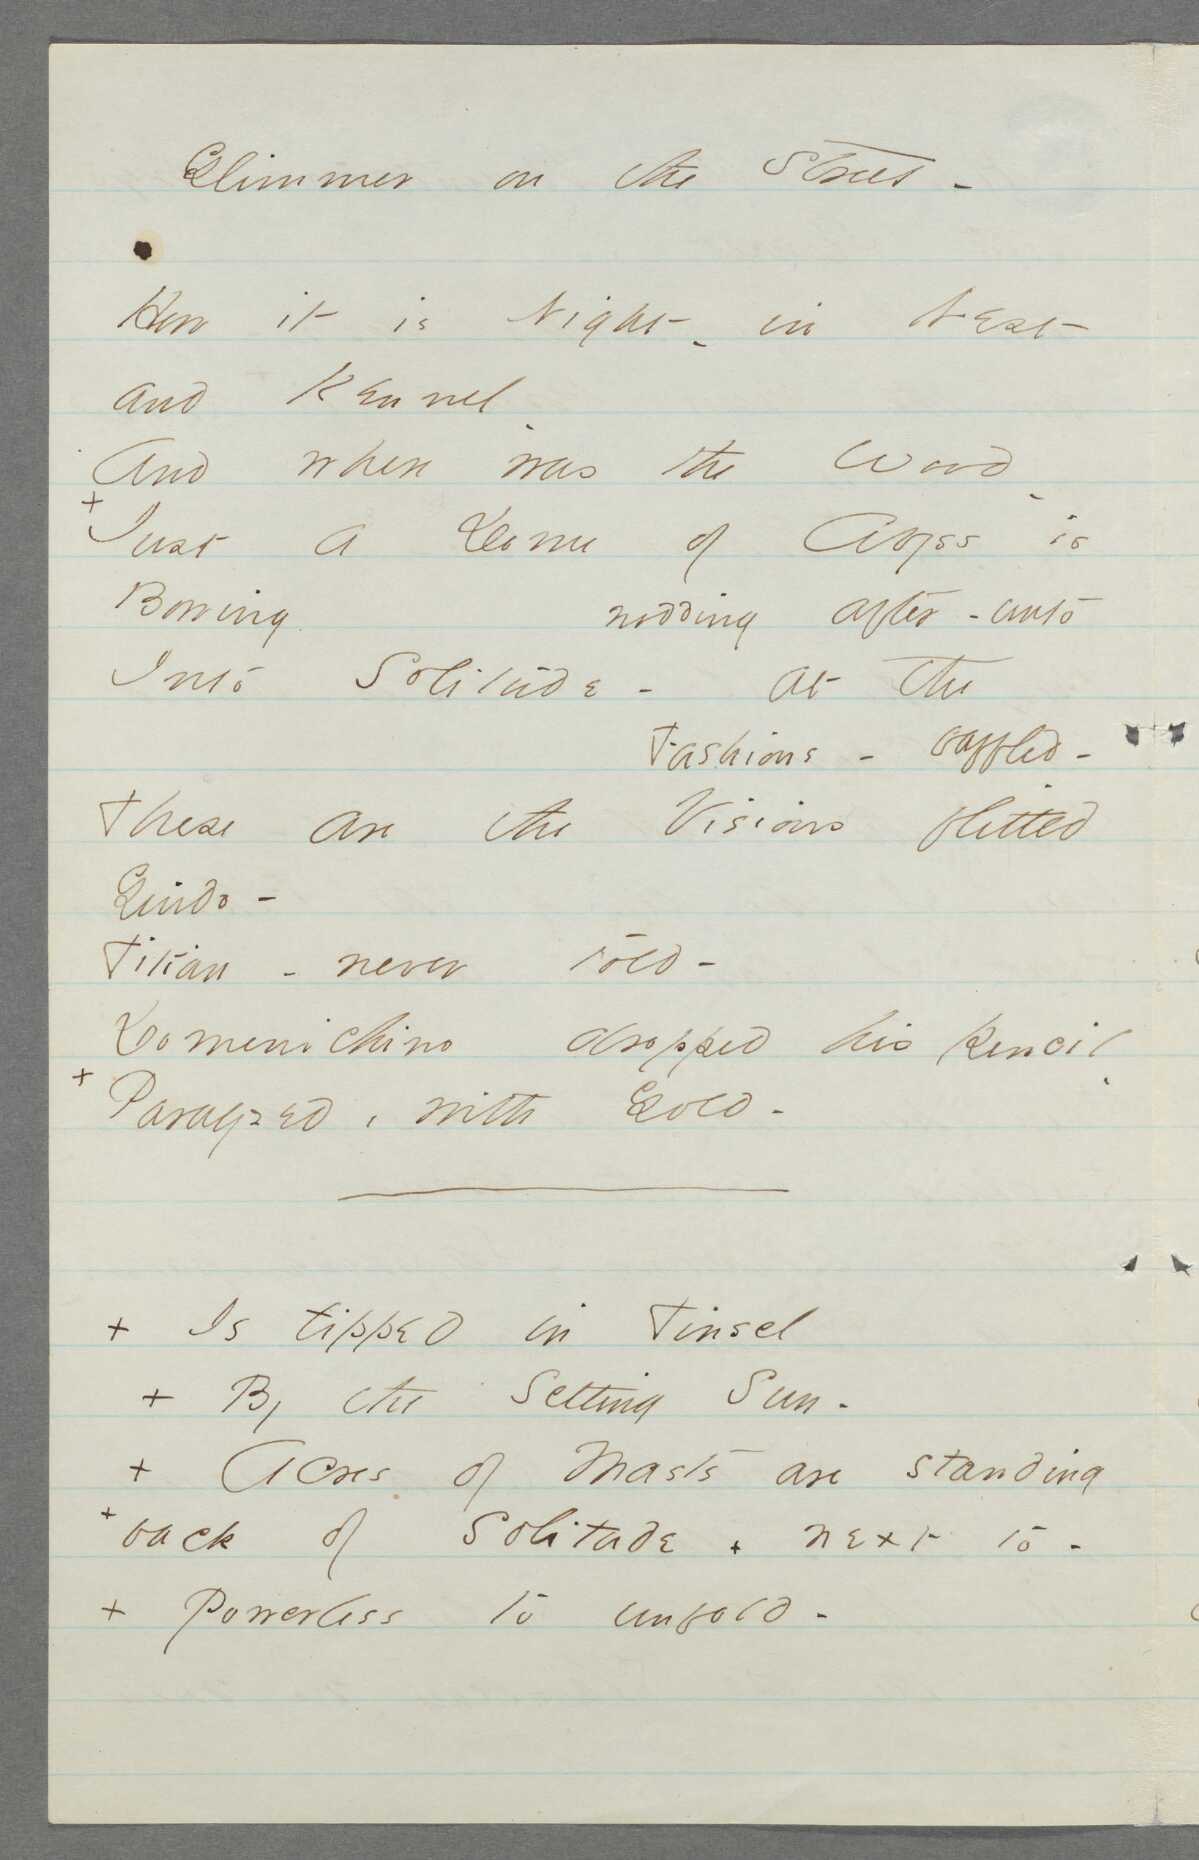 Glimmer on the Street -
How it is Night - in Nest
and Kennel -
And where was the Wood -
+ Just a Dome of Abyss is
Bowing nodding after - unto
Into Solitude - at the
Fashions - baffled -
These are the Visions flitted
Guido -
Titian - never told -
Domenichino dropped his pencil -
+ Paralyzed, with Gold -
+ Is tipped in Tinsel
+ By the Setting Sun -
+ Acres of Masts are standing
+ back of Solitude + next to -
+ Powerless to unfold -